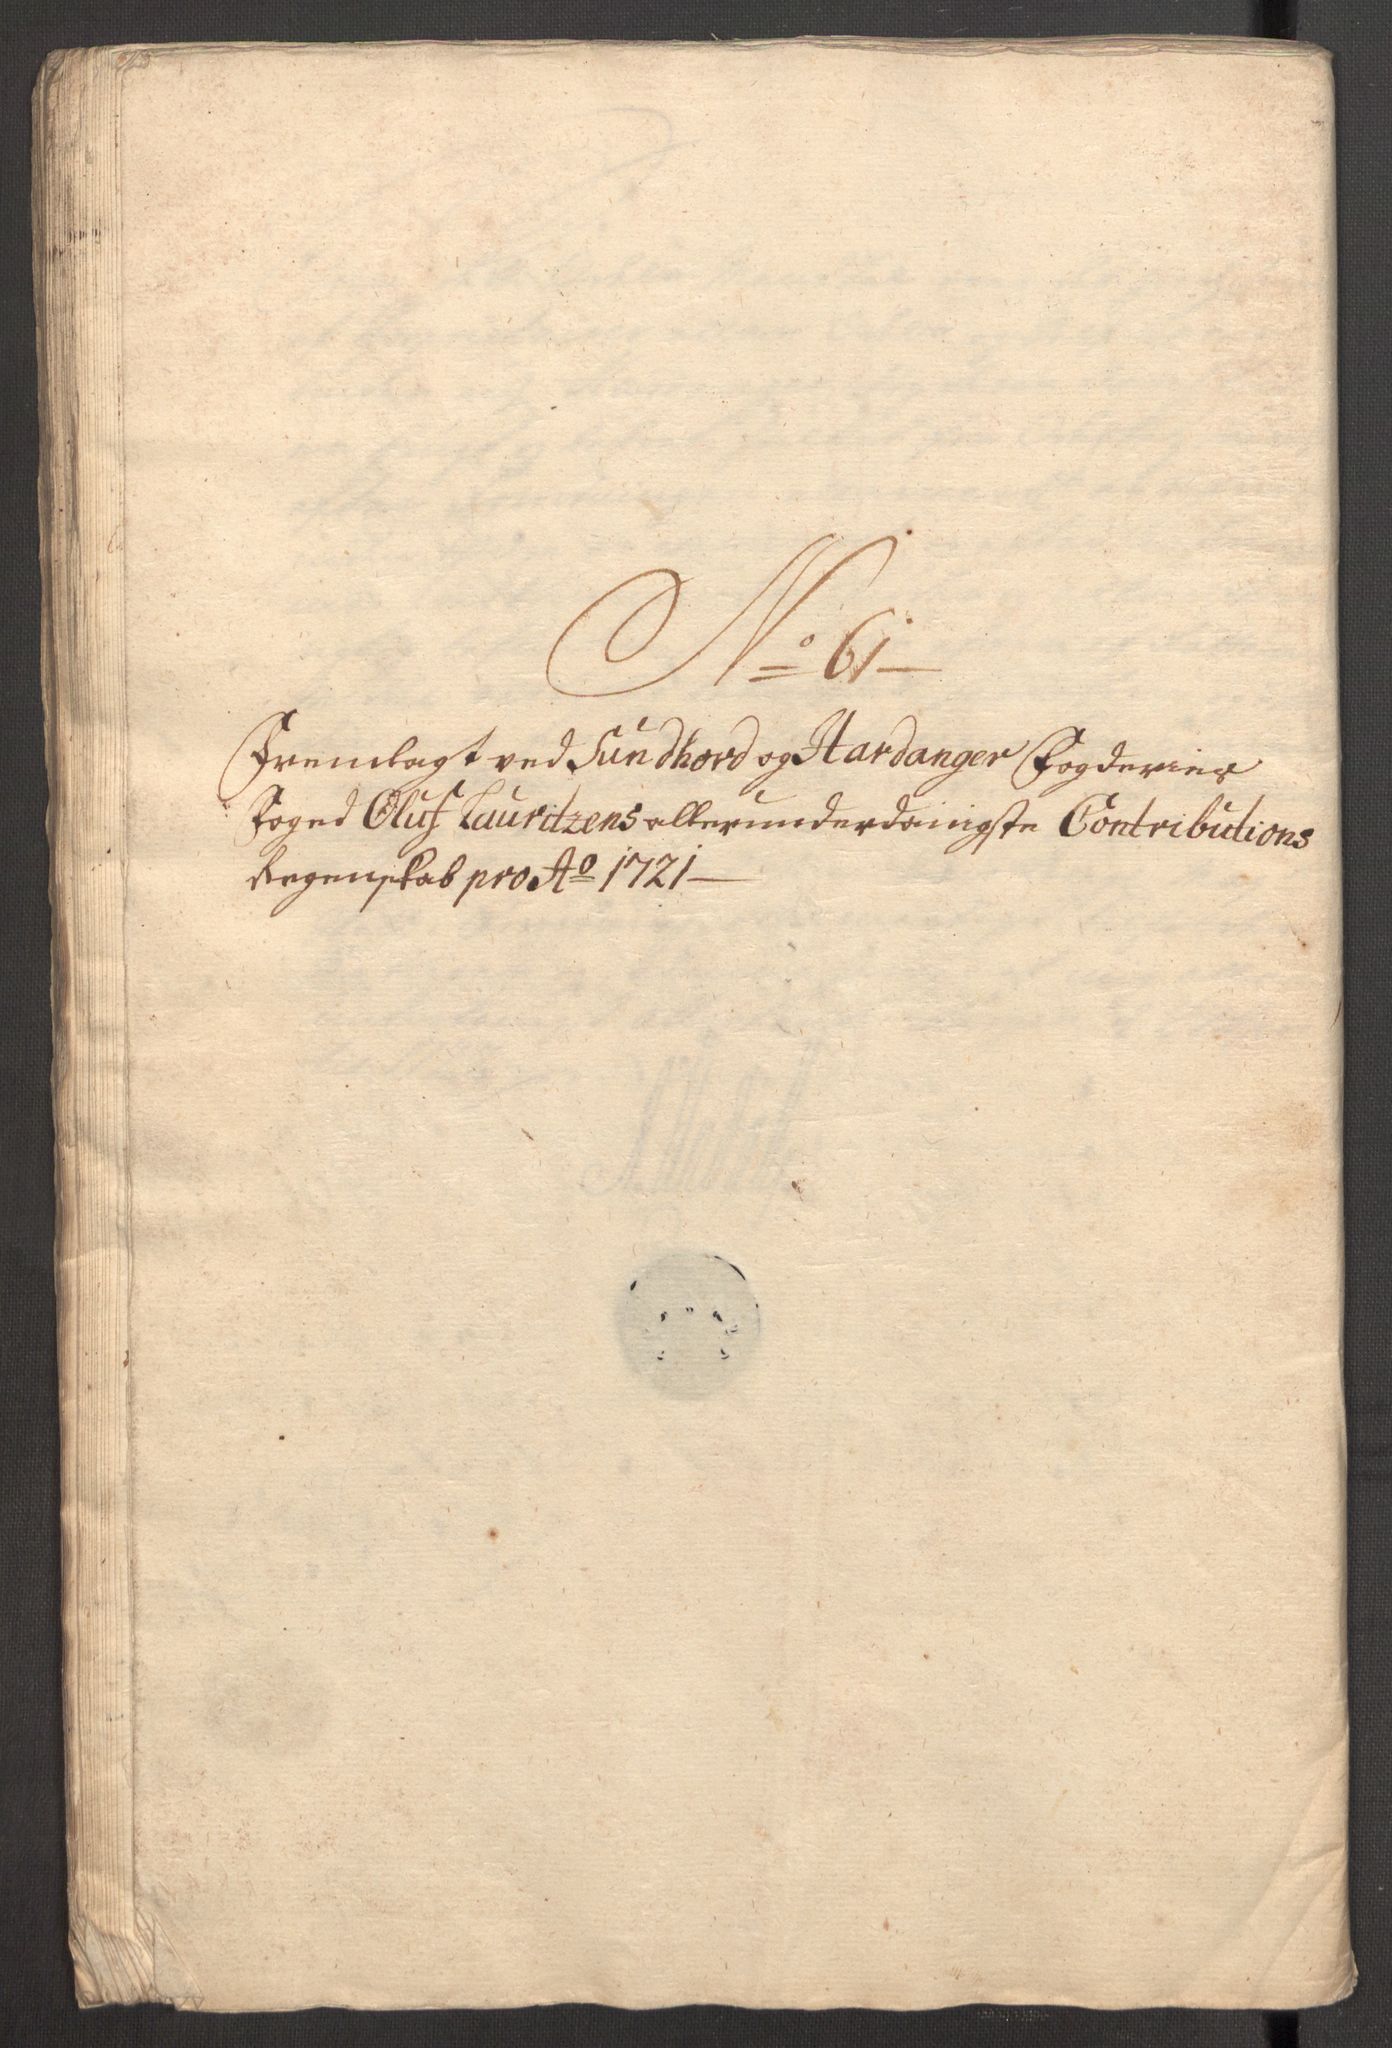 No 61
Fremlagt ved Sundhord og Hardanger Fogderies
Foged Oluf Lauritzens allerunderdanigste Contributions
Regenskab pro Ao 1721